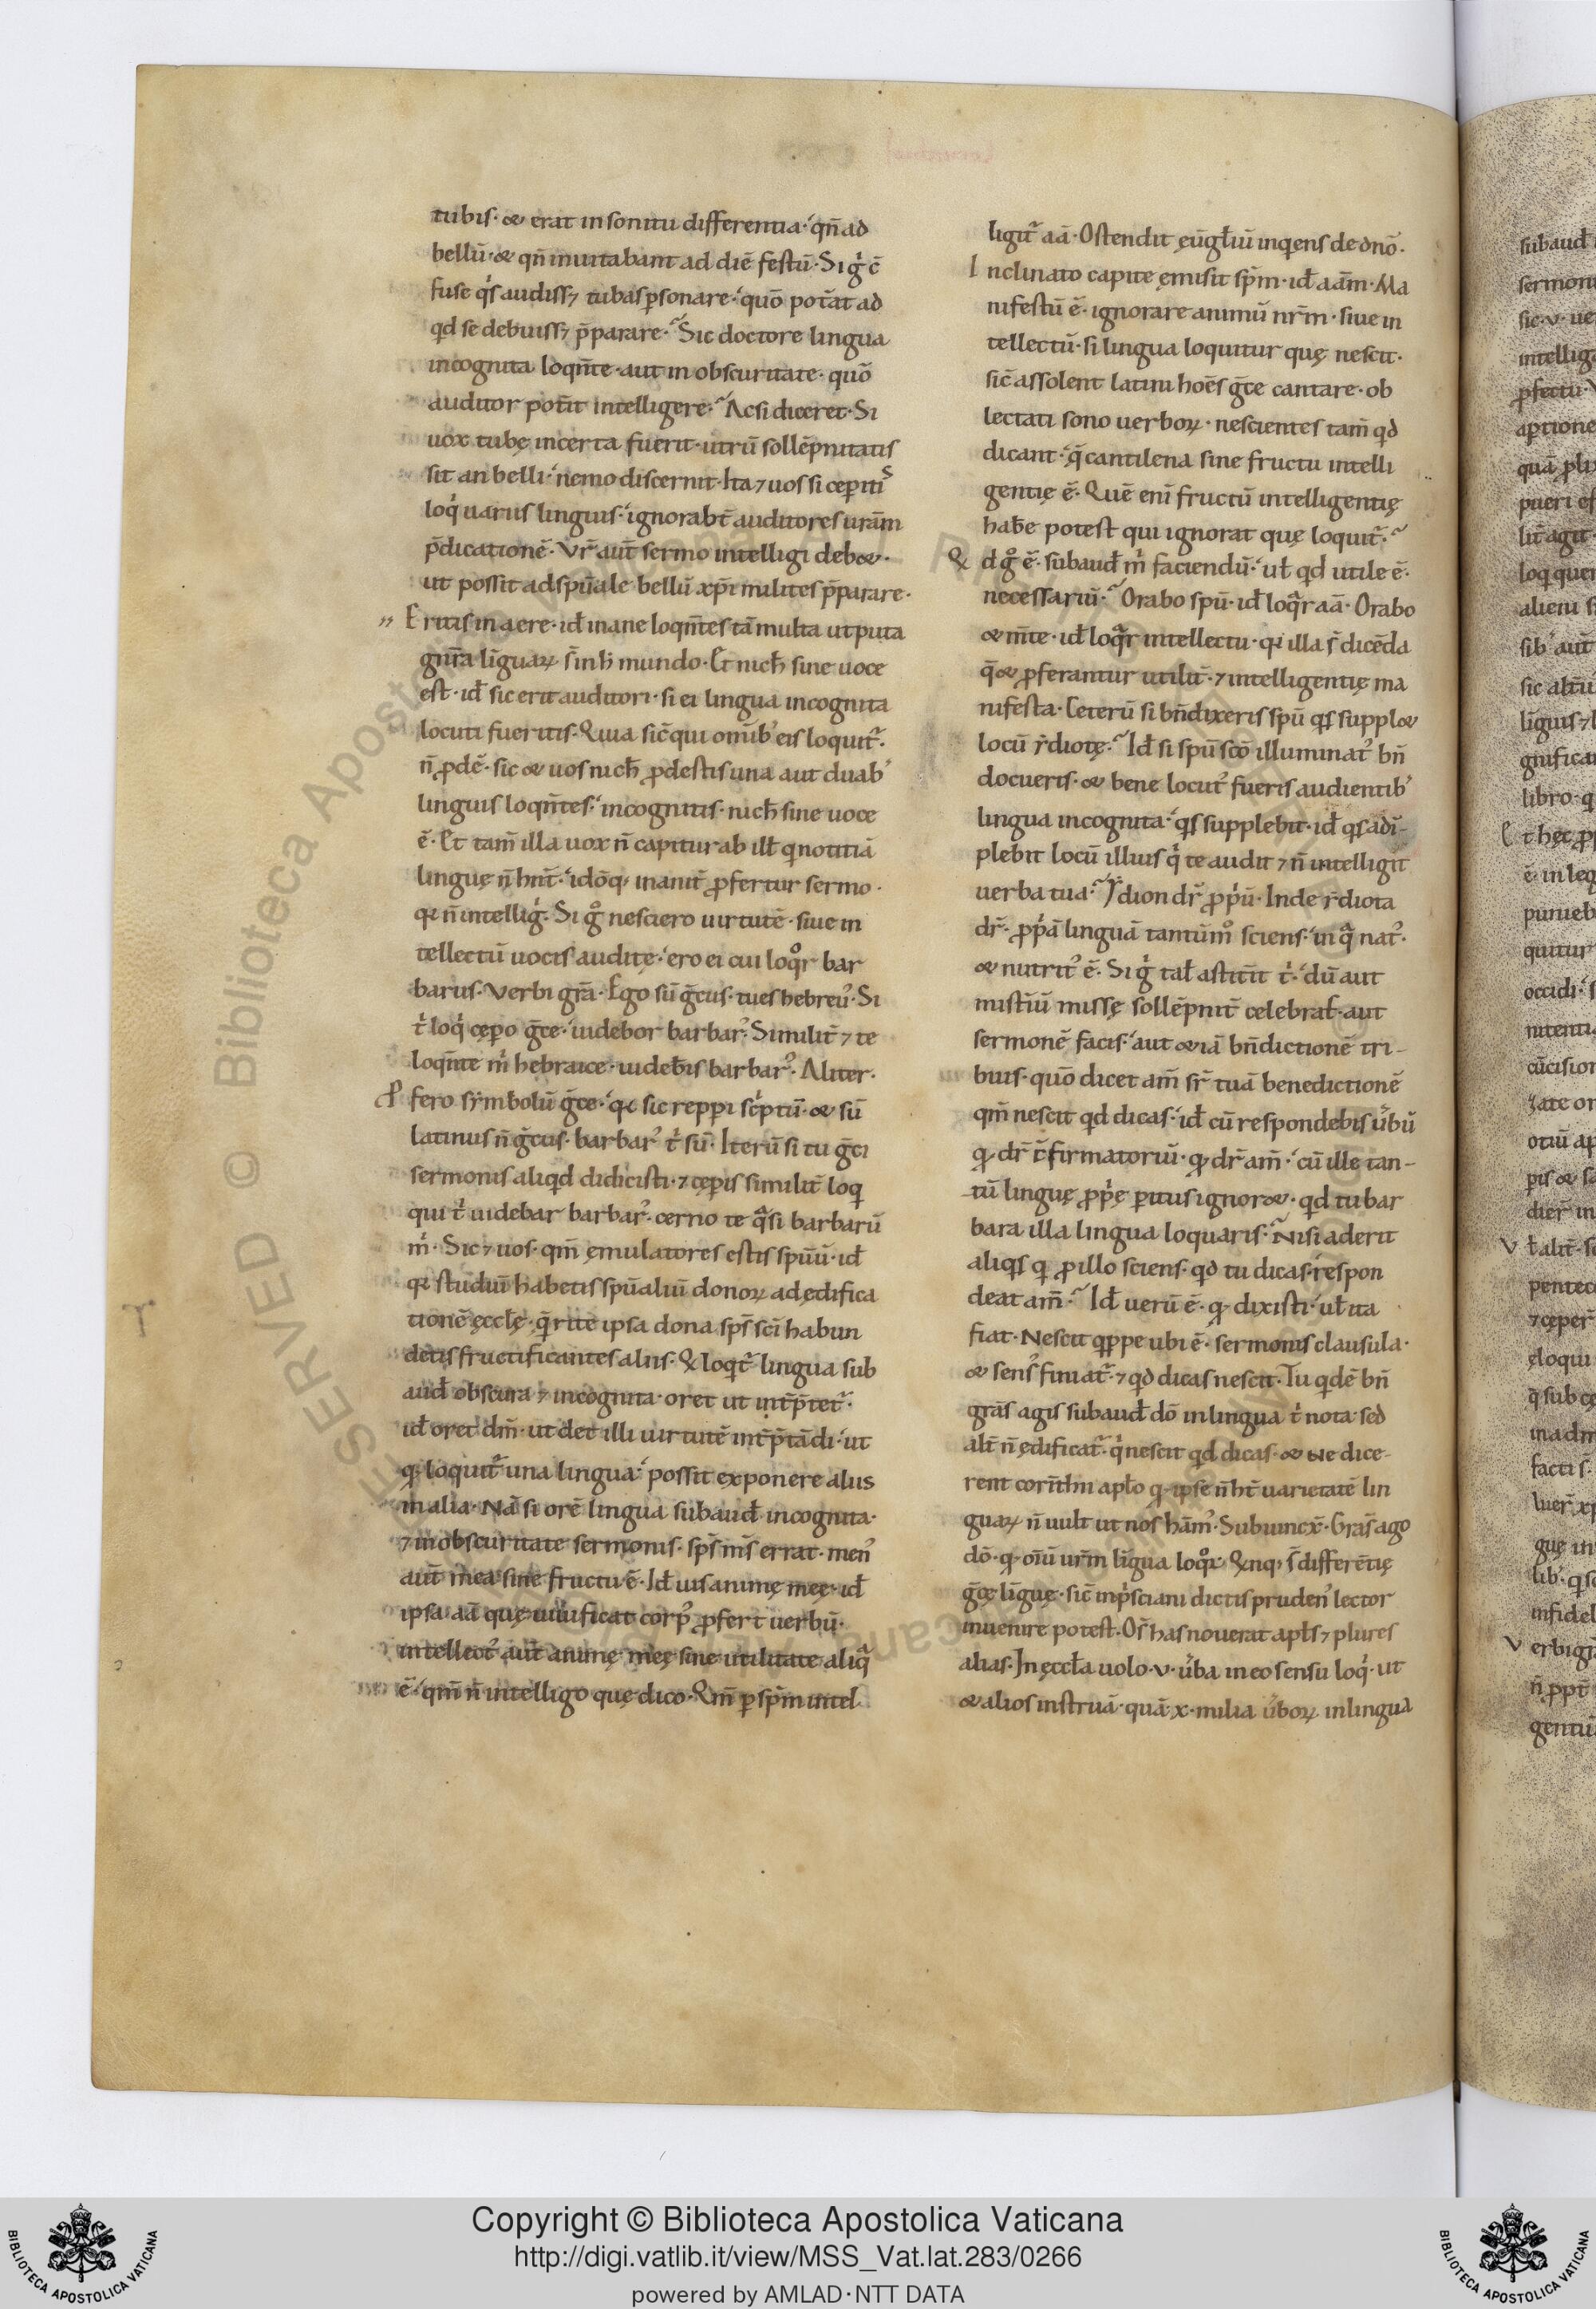 tubis· & erat in sonitu differentia· qn̄ ad
bellū· & qn̄ inuitabant ad diē festū· Si g̊ c̄
fuse qͥs audiss; tubas ꝑsonare· quō pot̄at ad
qd se debuiss; p̄parare· Sic doctore lingua
incognita loqn̄te· aut in obscuritate· quō
auditor pot̄it intelligere· Ac si diceret· Si
uox tubę incerta fuerit· utrū sollēpnitatis
sit an belli· nemo discernit· Ita ⁊ uos si cęperitis
loqͥ uariis linguis· ignorabt̄ auditores urām
p̄dicationē· Vr̄ aut̄ sermo intelligi deb&·
ut possit ad spūale bellū xp̄i milites p̄parare·
Eritis in aere· id̄ inane loqn̄tes tā multa ut puta
gn̄ra līguaꝝ s̄ in h̄ mundo· Et nich̄ sine uoce
est· id̄ sic erit auditori· si ei lingua incognita
locuti fueritis· Quia sic̄ qui omīb' eis loquit̄·
n̄ ꝓdē· sic & uos nich̄ ꝓdestis una aut duab'
linguis loqn̄tes· incognitis· nich̄ sine uoce
ē· Et tam̄ illa uox n̄ capitur ab ill̄ qͥ notitiā
linguę n̄ hn̄t· idōq; inanit̄ ꝓfertur sermo·
qͥ n̄ intelligͥ· Si g̊ nesciero uirtutē· siue in
tellectū uocis auditę· ero ei cui loqͦr bar
barus· Verbi grā· Ego sū g̅cus· tu es hebreu'· Si
tͥ loqͥ cępo g̅ce· uidebor barbar'· Similit̄ ⁊ te
loqn̄te mͥ hebraice· uideb̄is barbar'· Aliter·
Ꝓfero sẏmbolū g̅ce· qͥ sic repperi scͥptū· & sū
latinus n̄ g̅cus· barbar' tͥ sū· Iterū si tu g̅ci
sermonis aliqd didicisti· ⁊ cęperis similit̄ loqͥ
qui tͥ uidebar barbar'· cerno te qͣsi barbarū
mͥ· Sic ⁊ uos· qm̄ ęmulatores estis spūū· id̄
qͥ studiū habetis spūaliū donoꝝ ad ędifica
tionē ęccl̄ę· q̄rite ipsa dona sp̄s sc̄i habun
detis fructificantes aliis· & loqit̄ lingua sub
aud̄ obscura ⁊ incognita· oret ut int̄p̄tet̄·
id̄ oret dm̄· ut det illi uirtutē int̄p̄tādi· ut
qͥ loquit̄ una lingua· possit exponere aliis
in alia· Nā si orē lingua subaud̄ incognita·
⁊ in obscuritate sermonis· sp̄s m̄s errat· men'
aut̄ mea sine fructu ē· Id̄ uis animę meę· id̄
ipsa aā quę uiuificat corp' ꝓfert uerbū·
intellect' aut̄ animę meę sine utilitate aliqͣ
ē· qm̄ n̄ intelligo quę dico· Qm̄ ꝑ sp̄m intel
ligit̄ aā· Ostendit ęūgl̄iū inqens de dnō·
Inclinato capite ęmisit sp̄m· id̄ aām· Ma
nifestū ē· ignorare animū nr̄m· siue in
tellectū· si lingua loquitur quę nescit·
sic̄ assolent latini hoēs g̅ce cantare· ob
lectati sono uerboꝝ· nescientes tam̄ qd
dicant· q̄ cantilena sine fructu intelli
gentię ē· Quē enī fructū intelligentię
hab̄e potest qui ignorat quę loquit̄·
Qd g̊ ē· subaud̄ mͥ faciendū· ul̄ qd utile ē·
necessariū· Orabo spū· id̄ loqͣr aā· Orabo
& m̄te· id̄ loqͣr intellectu· qͥ illa s̄ dicēda
q̄ & ꝓferantur utilit̄· ⁊ intelligentię ma
nifesta· Ceterū si bn̄dixeris spū qͥs suppl&
locū ẏdiotę· Id̄ si spū scō illuminat' bn̄
docueris· & bene locut' fueris audientib'
lingua incognita· qͥs supplebit· id̄ qͥs adī-
plebit locū illius qͥ te audit ⁊ n̄ intelligit
uerba tua· Ẏdion dr̄ ꝓpͥū· Inde ẏdiota
dr̄· ꝓpͥā linguā tantūm̊ sciens· in qͣ nat'·
& nutrit' ē· Si g̊ tal̄ astit̄it tͥ· dū aut
mist̄iū missę sollēpnit̄ celebrat̄· aut
sermonē facis· aut &iā bn̄dictionē tri-
buis· quō dicet am̄ sr̄ tuā benedictionē
qm̄ nescit qd dicas· id̄ cū respondebis u̇bū
qͦ dr̄ c̄firmatoriū· qͦ dr̄ am̄· cū ille tan-
tū linguę ꝓpͥę ꝑitus ignor&· qd tu bar
bara illa lingua loquaris· Nisi aderit
aliqͥs qͥ ꝓ illo sciens· qd tu dicas· respon
deat am̄· Id̄ uerū ē· qͦ dixisti· ul̄ ita
fiat· Nescit qͥppe ubi ē· sermonis clausula·
& sens' finiat̄· ⁊ qd dicas nescit· Tu qͥdē bn̄
grās agis subaud̄ dō in lingua tͥ nota· sed
alt̄ n̄ ędificat̄· qͥ nescit qd dicas· & ne dice-
rent corīthii apl̄o qͦ ipse n̄ ht̄ uarietatē lin
guaꝝ n̄ uult ut nos hām'· Subiuncx̄· Grās ago
dō· qͦ oīū ur̄m līgua loqͦr· Qnq; s̄ differētię
g̅cę līguę· sic̄ in pͥsciani dictis pruden' lector
inuenire potest· Os̄ has nouerat apl̄s ⁊ plures
alias· In ęccl̄a uolo· v· u̇ba in eo sensu loqͥ· ut
& alios instruā· quā· x· milia u̇boꝝ in lingua
Copyright © Biblioteca Apostolica Vaticana
http://digi.vatlib.it/view/MSS_Vat.lat.283/0266
powered by AMLAD·NTT DATA
BIBLIOTECA APOSTOLICA VATICANA
BIBLIOTECA APOSTOLICA VATICANA